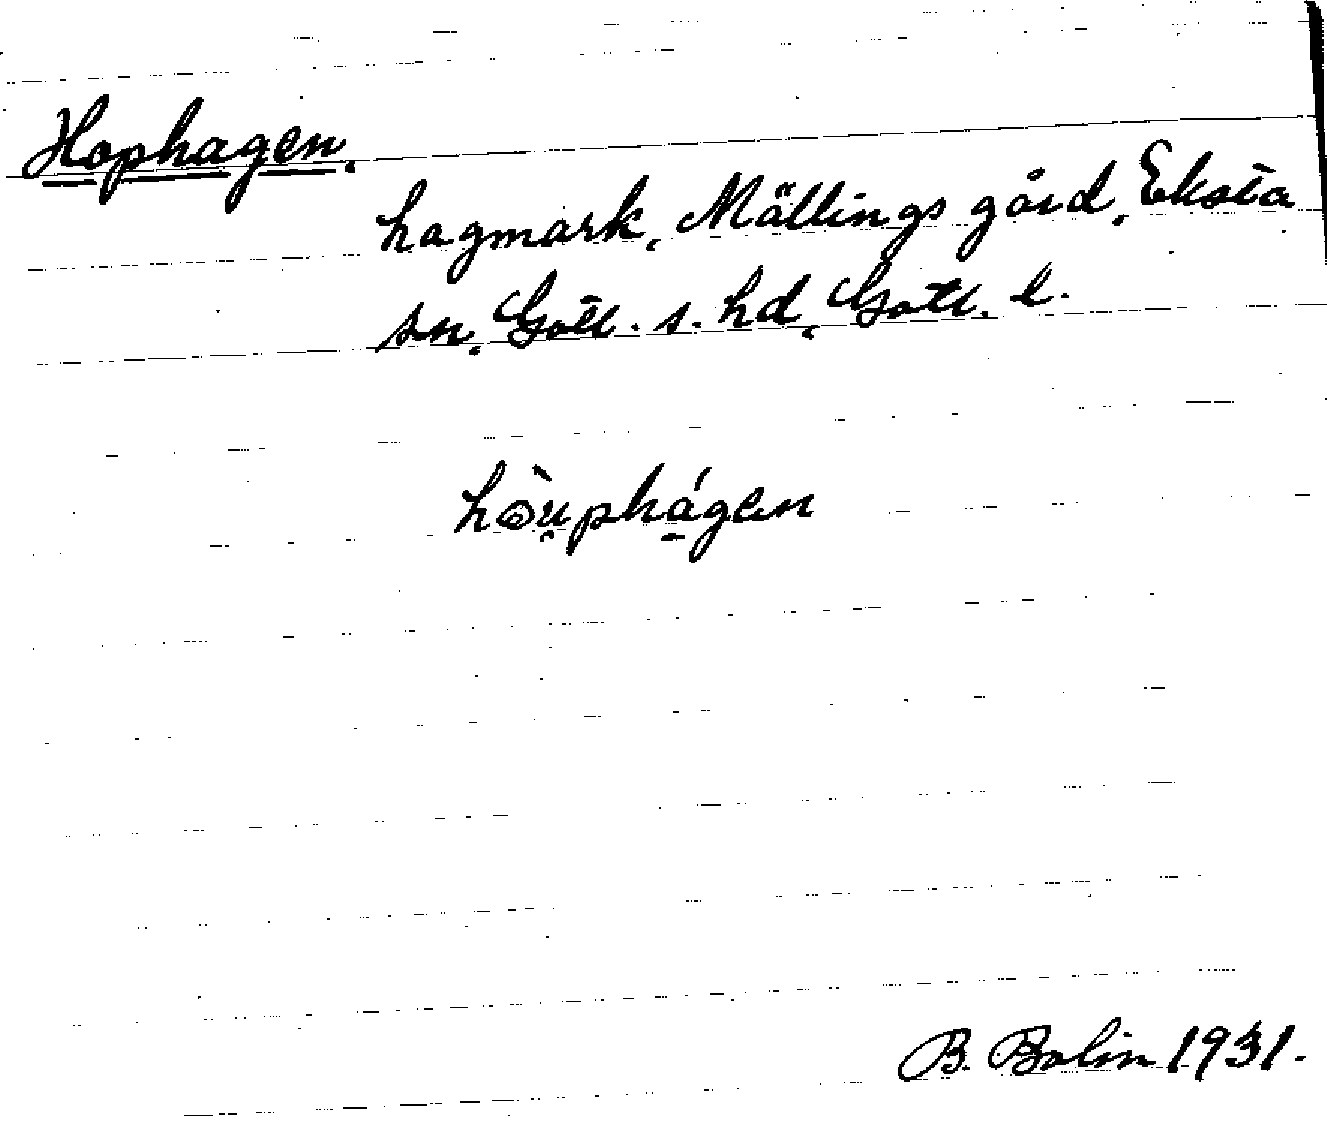 Hophagen.
hagmark, Mällings gård, Eksta
sn, Gotl. s. hd, Gotl. l.
hòu̯phá̱gen
B. Bolin 1931.